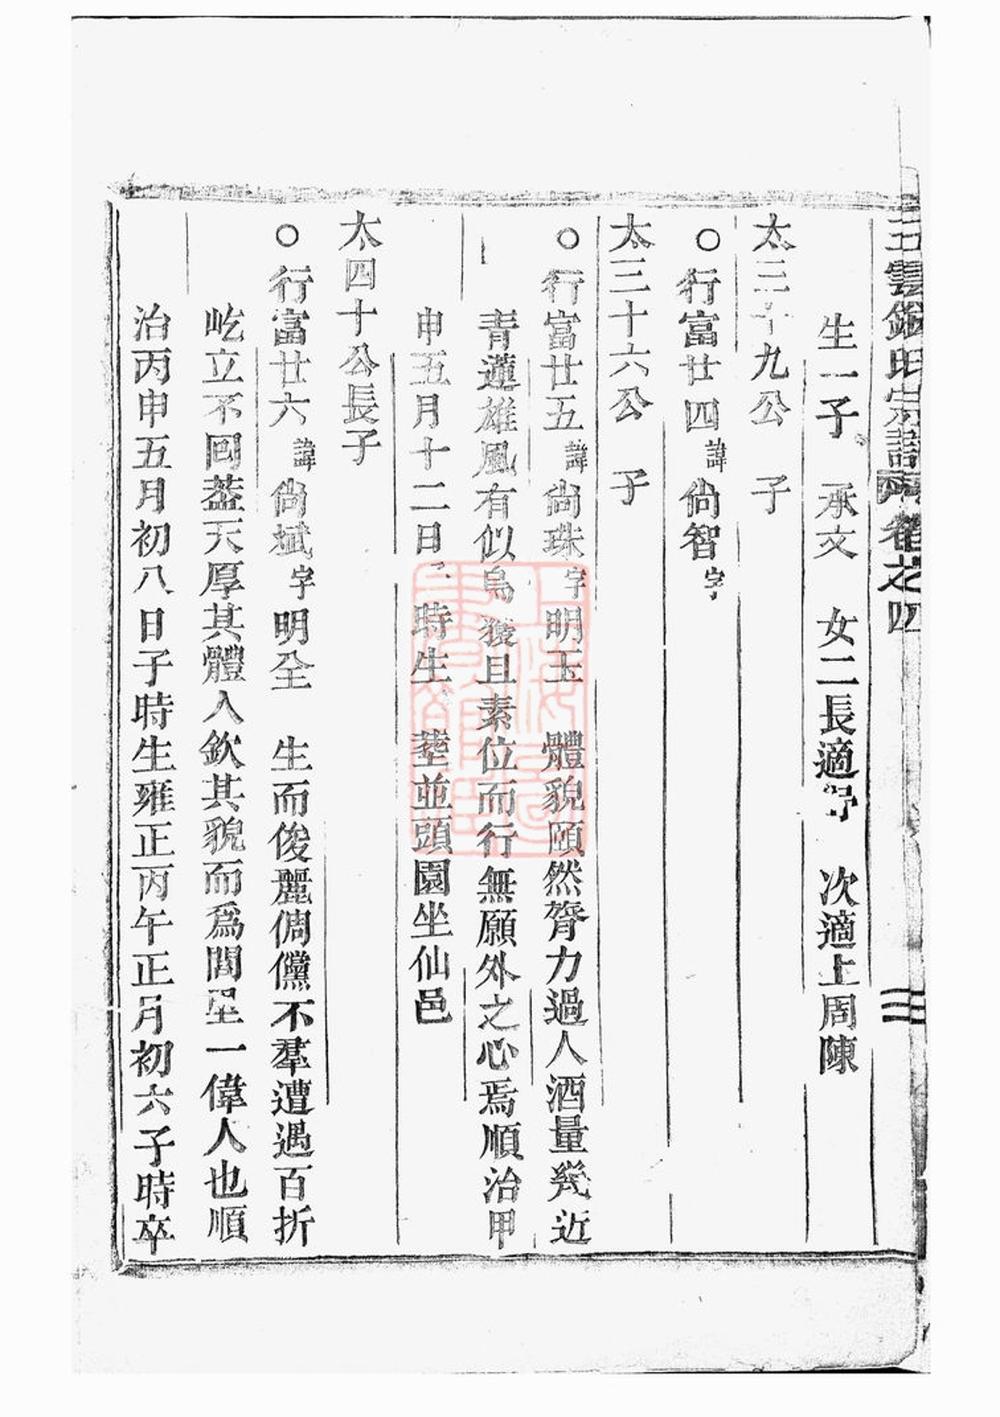 雲錢氏宗譜兩卷之四
生一子　承文　女二長適　次適上周陳
太三十九公　子
○行富廿四諱尙智字
太三十六公　子
○行富廿五諱尙珠字明玉　體貌頎然膂力過人酒量幾近
青蓮雄風有似烏獲且素位而行無願外之心焉順治甲
申五月十二日　時生　塟並頭園坐仙邑
太四十公長子
○行富廿六諱尙斌字明全　生而俊麗倜儻不羣遭遇百折
屹立不回葢天厚其體人欽其貌而爲閭里一偉人也順
治丙申五月初八日子時生雍正丙午正月初六子時卒